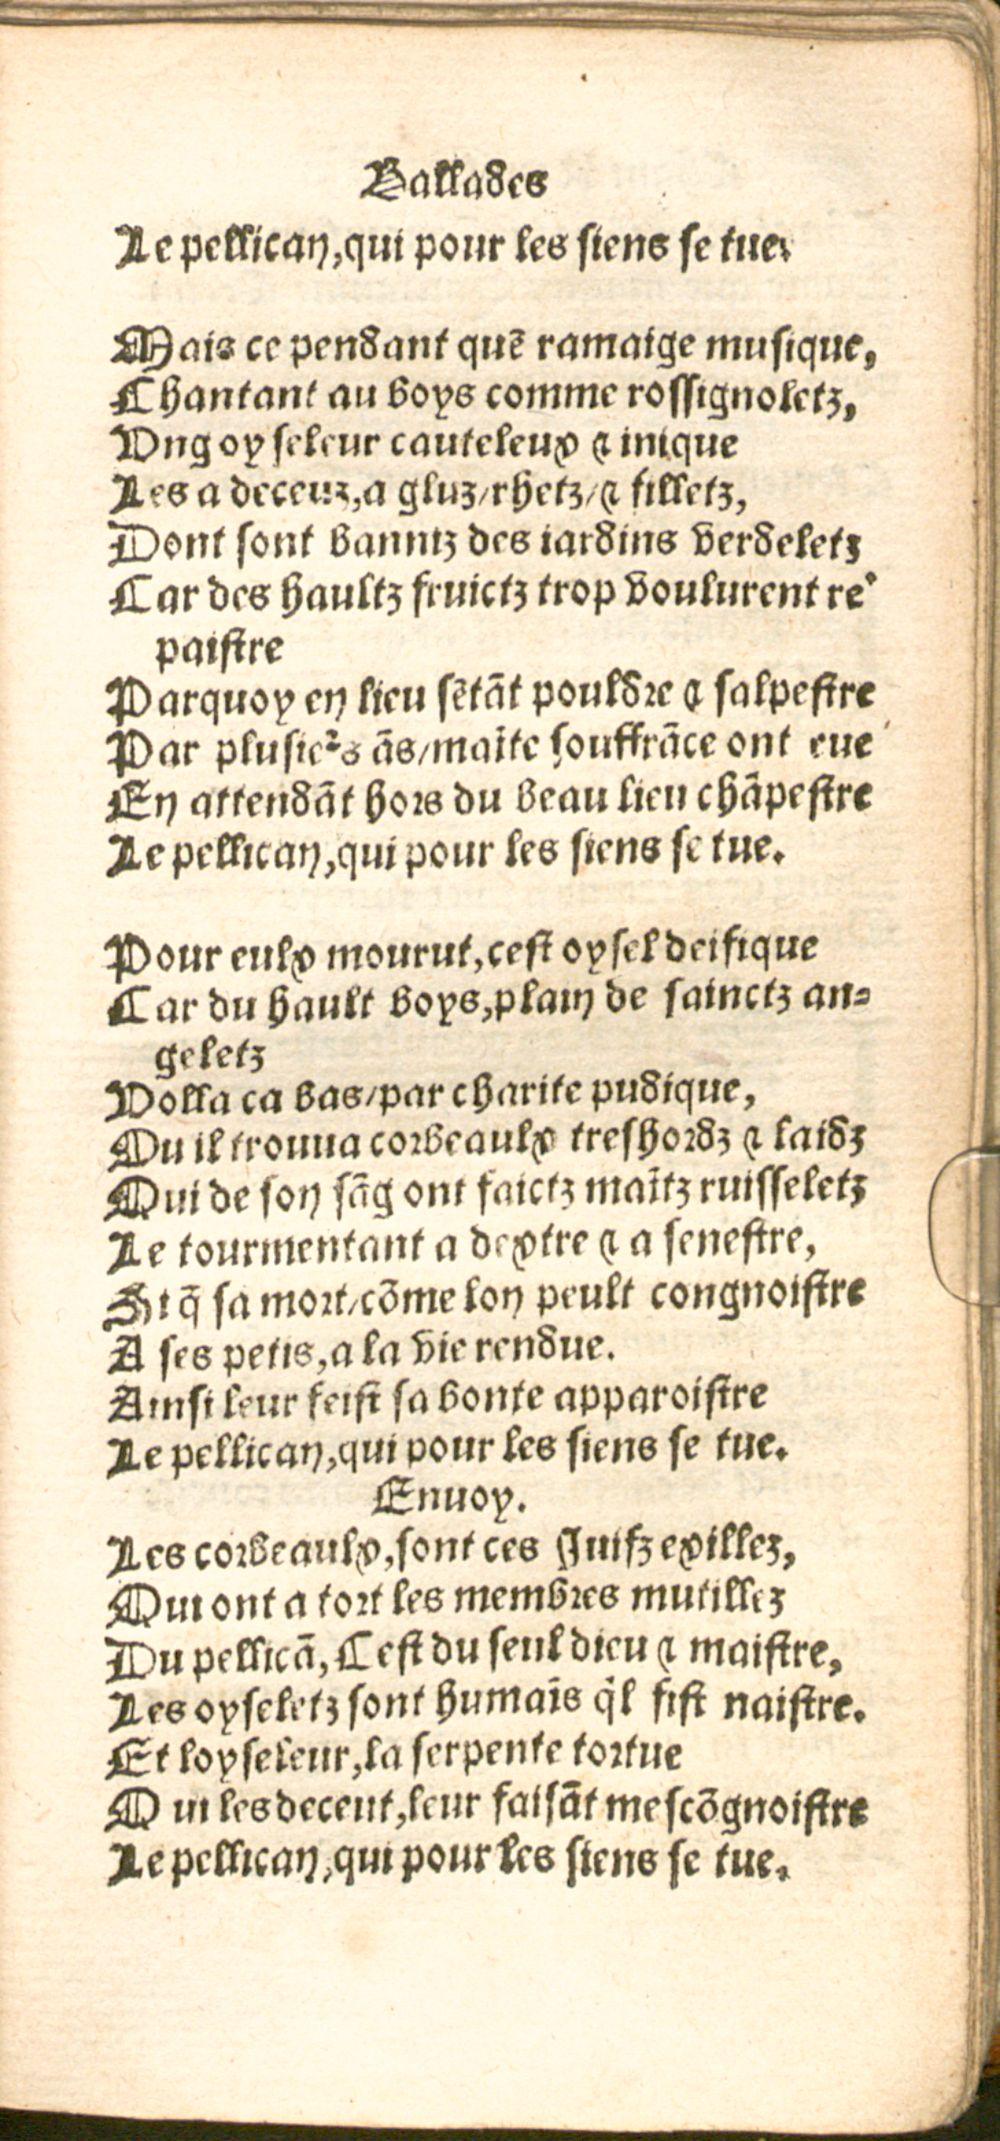 Ballades
Le pellican, qui pour les siens se tue.
Mais ce pendant quē ramaige musique,
Chantant au boys comme rossignoletz,
Vng oyseleur cauteleux ⁊ inique
Les a deceuz, a gluz/rhetz/⁊ filletz,
Dont sont banniz des iardins verdeletz
Car des haultz fruictz trop voulurent re
paistre
Parquoy en lieu sētāt pouldre ⁊ salpestre
Par plusieᷣs ās/maīte souffrāce ont eue
En attendāt hors du beau lieu chāpestre
Le pellican, qui pour les siens se tue.
Pour eulx mourut, cest oysel deifique
Car du hault boys, plain de sainctz an-
geletz
Volla ca bas/par charite pudique,
Ou il trouua corbeaulx treshordz ⁊ laidz
Qui de son sāg ont faictz maītz ruisseletz
Le tourmentant a dextre ⁊ a senestre,
Si q̄ sa mort/cōme lon peult congnoistre
A ses petis, a la vie rendue.
Ainsi leur feist sa bonte apparoistre
Le pellican, qui pour les siens se tue.
Enuoy.
Les corbeaulx, sont ces Juifz exillez,
Qui ont a tort les membres mutillez
Du pellicā, Cest du seul dieu ⁊ maistre,
Les oyseletz sont humaīs q̇l fist naistre.
Et loyseleur, la serpente tortue
Qui les deceut, leur faisāt mescōgnoistre
Le pellican, qui pour les siens se tue.